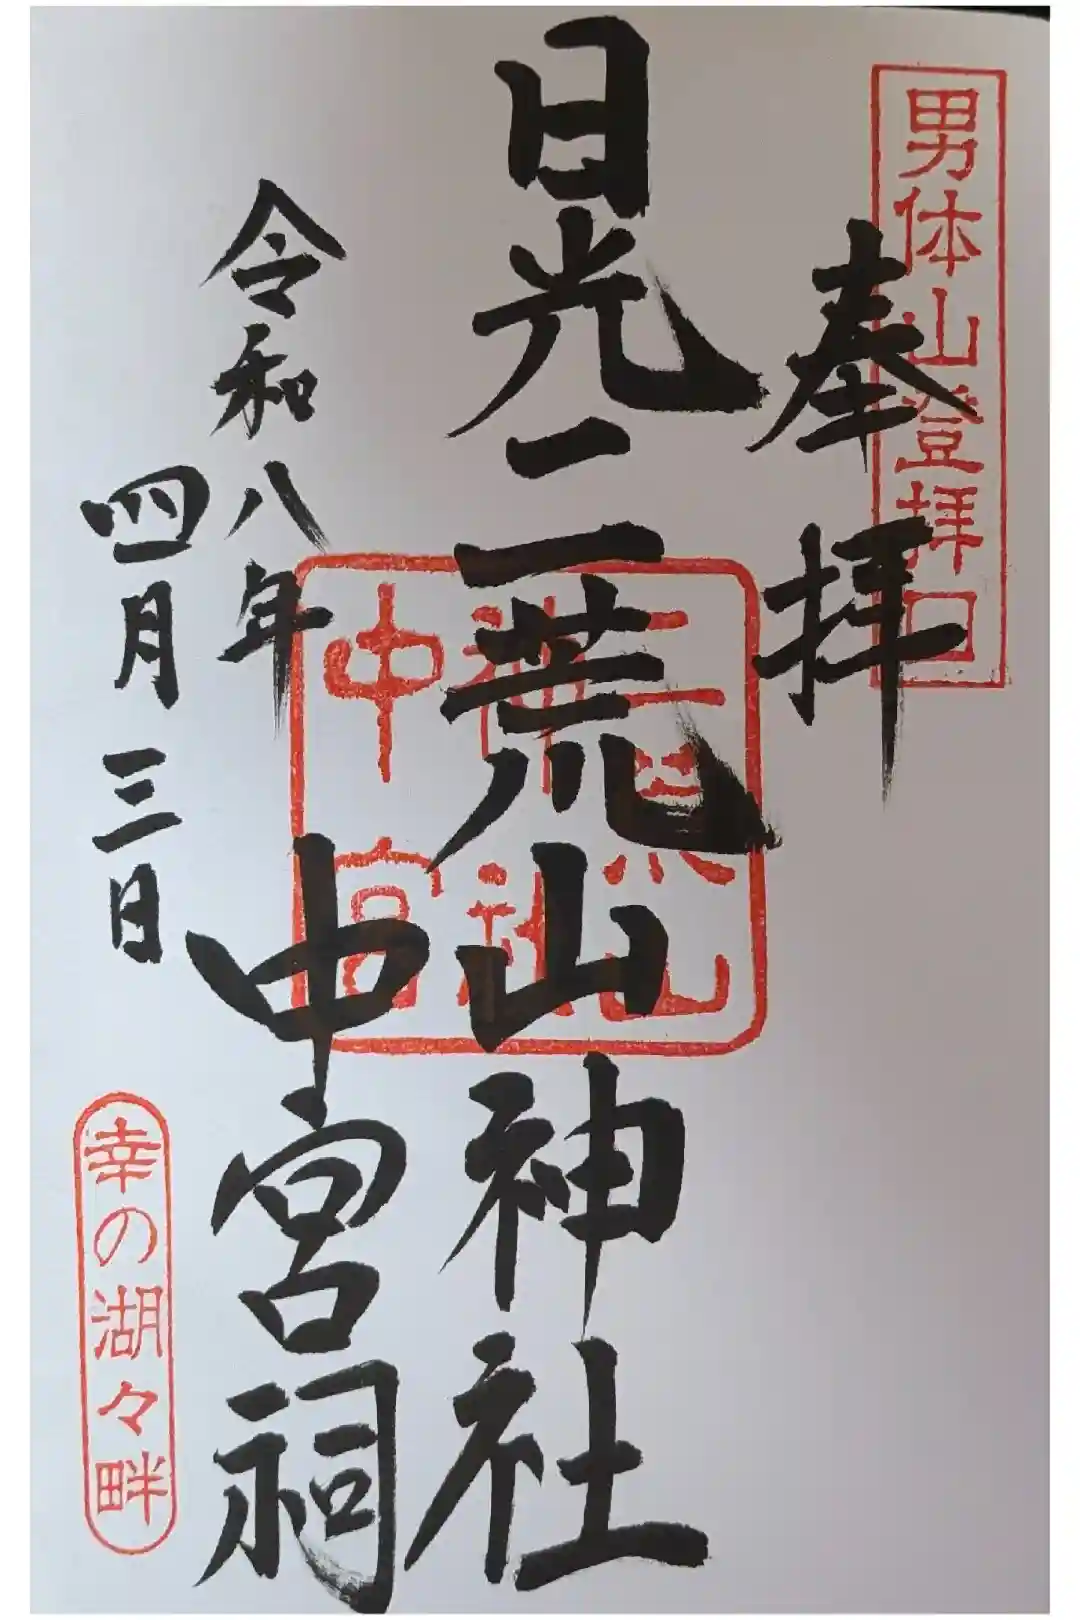 男体山登拝口
奉拝
日光二荒山神社
中宮祠
二荒山
神社
中宮
令和八年
四月三日
幸の湖々畔